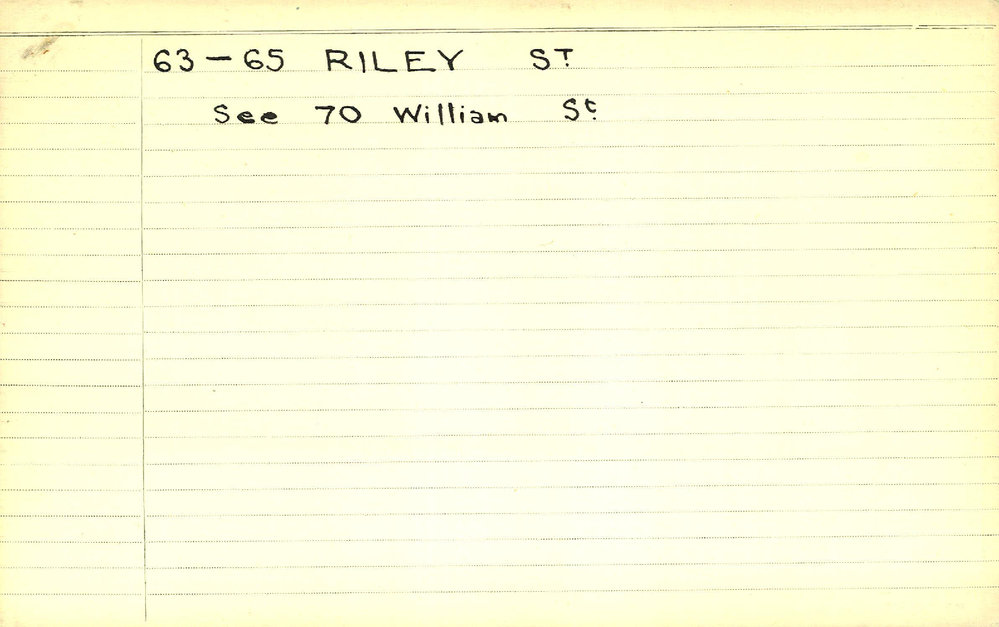 63-65 RILEY ST
See 70 William St.